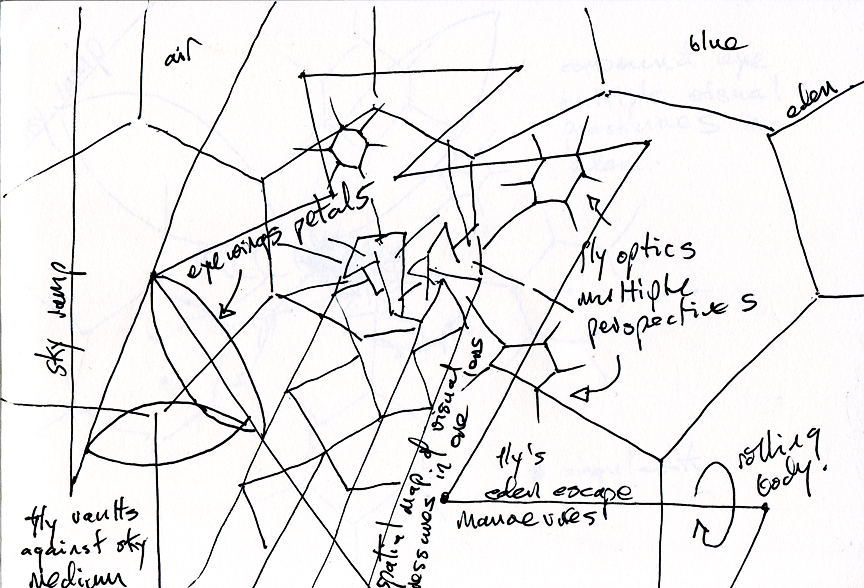 air
blue
eden
eye wings petals
sky ramp
fly optics
multiple
perspectives
spatial map of visual
in one
fly's
eden escape
manaevures
rolling
body.
fly vaults
against sky
medium